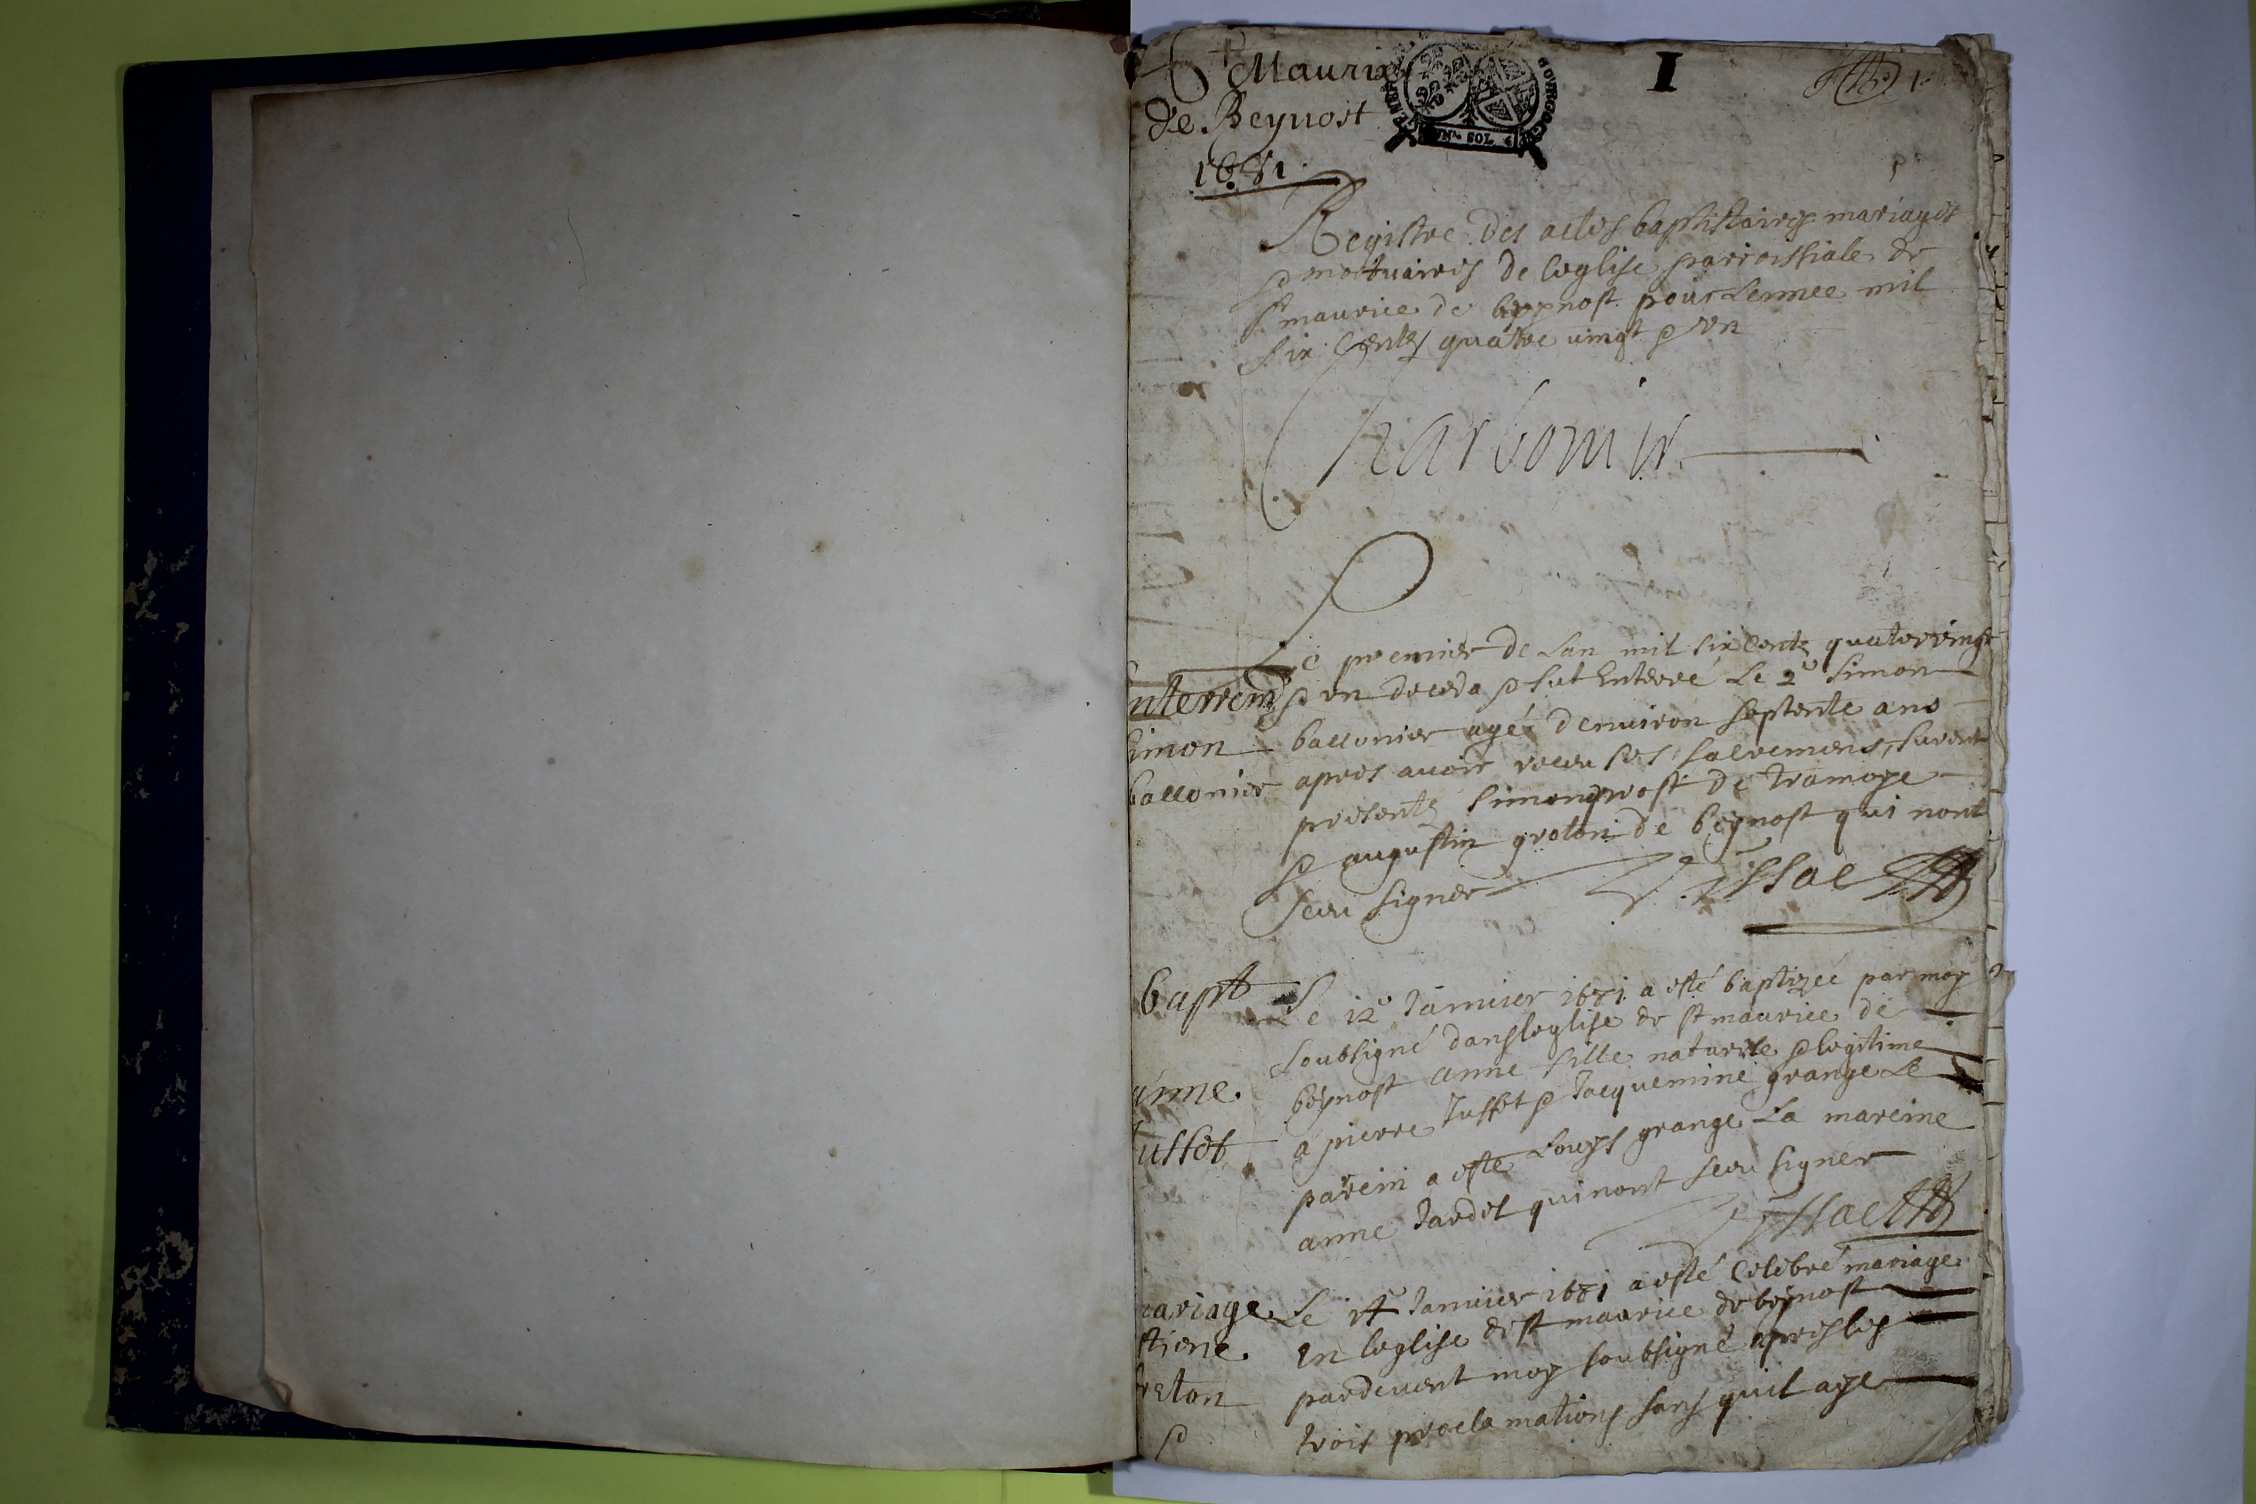 St Maurice
de Beynost
1681
I
1.
GENERALITE BOVRGOGNE
VN SOL 4
Registre des actes baptistaires mariages
& mortuaires de leglise parroissiale de
st maurice de beynost pour lennee mil
six cents quatre vingt & un
Charbonier
Le premier de lan mil six cents quatervingt
& un deceda & fut Enterré le 2e Simon
ballonier agé denuiron septente ans
apres auoir receu ses sacremens, furent
presents simon prost de tramoye
& augustin groton de beynost qui nont
sceu signer
Enterremt
Simon
ballonier
Bapt
anne
Jusset
Le 12e Januier 1681 a esté baptizeé par moy
soubsigné dans leglise de st maurice de
beynost anne fille naturele & legitime
a pierre Jusset & Jacquemine grange le
parein a esté Louys grange La mareine
anne Jardet qui nont sceu signer
mariage
Le Januier 1681 a esté Celebré mariage
En leglise de st maurice de beynost
pardeuent moy soubsigné apres les
trois proclamations sans quil aye
&